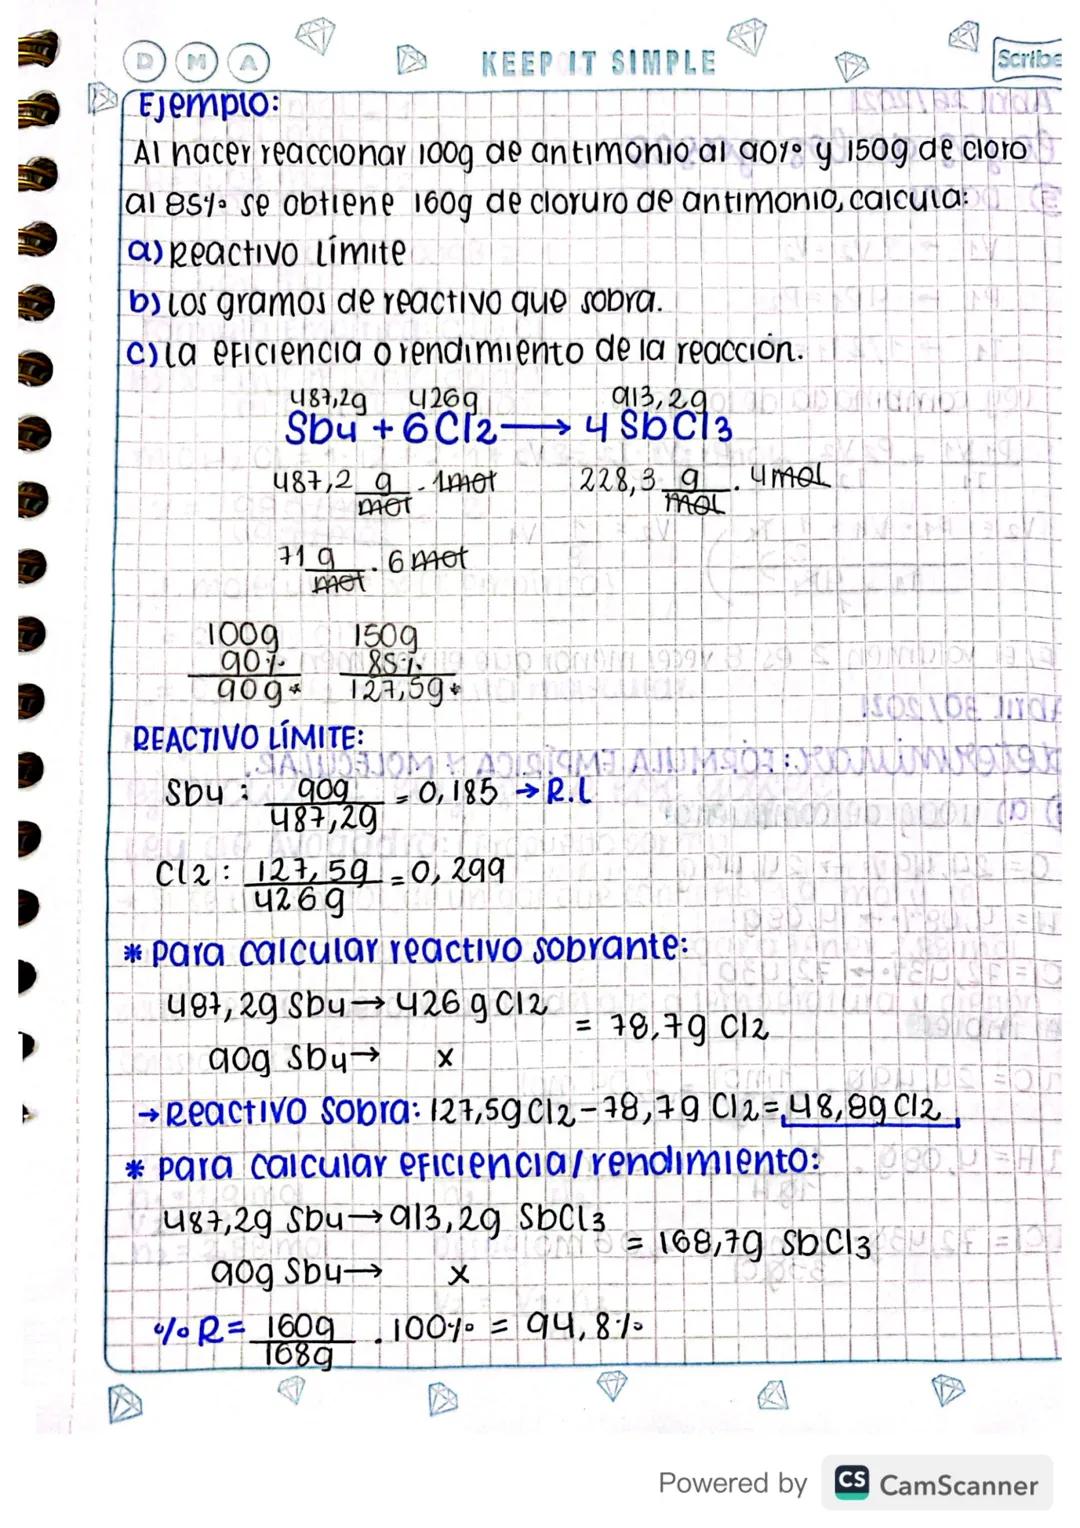 D M A KEEP IT SIMPLE Scribe
Ejemplo:
Al hacer reaccionar 100g de antimonio al 90% y 150g de cloro
al 85% se obtiene 160g de cloruro de antimonio, calcula:
a) Reactivo límite
b) Los gramos de reactivo que sobra.
c) La eficiencia o rendimiento de la reacción.
487,2g 426g 913,2g
Sb4 + 6Cl2 → 4 SbCl3
487,2 g/mol . 1mol 228,3 g/mol . 4mol
71 g/mol . 6 mol
100g 150g
90% 85%
90g* 127,5g*
REACTIVO LÍMITE:
Sb4 : 90g/487,2g = 0,185 → R.L
Cl2 : 127,5g/426g = 0,299
* Para calcular reactivo sobrante:
487,2g Sb4 → 426 g Cl2
= 78,7g Cl2
90g Sb4 → x
→ Reactivo Sobra: 127,5g Cl2 - 78,7g Cl2 = 48,8g Cl2
* Para calcular eficiencia/rendimiento:
487,2g Sb4 → 913,2g SbCl3
= 168,7g SbCl3
90g Sb4 → x
% R = 160g/168g . 100% = 94,8%
Powered by CS CamScanner